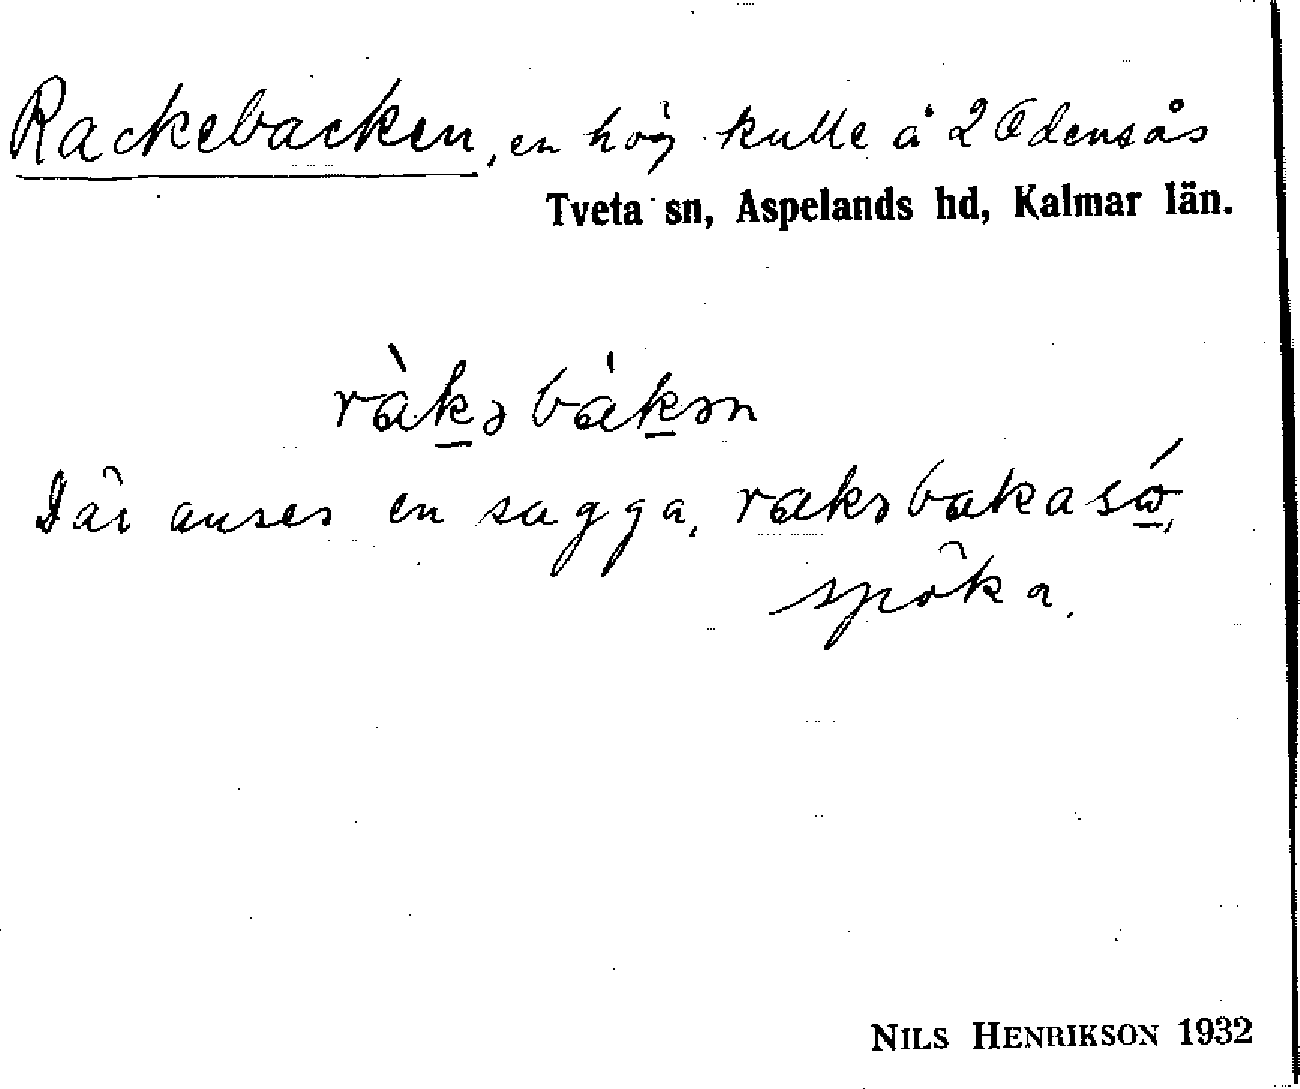 Rackebacken, en hög kulle å 2 Odensås
Tveta sn, Aspelands hd, Kalmar län.
ràkə bàkən
Där anses en sagga, rakə bakasó,
spöka.
NILS HENRIKSON 1932